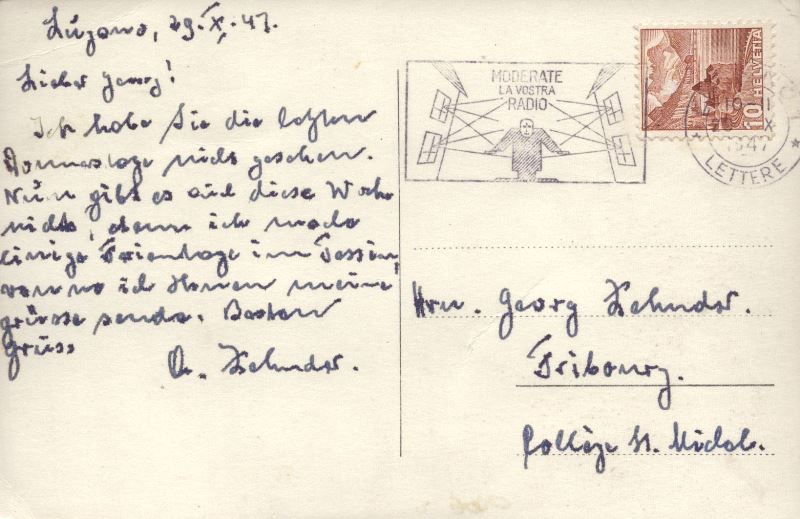 Lugano, 29. X. 47.
Lieber Georg!
Ich habe Sie die letzten
Donnerstage nicht gesehen.
Nun gibt es auch diese Woche
nichts, denn ich mache
einige Ferientage im Tessin,
von wo ich Ihnen meine
grüsse sende. Besten
Gruss
A. Zehnder.
MODERATE
LA VOSTRA
RADIO
10 HELVETIA
1947
LETTERE
Hrn. Georg Zehnder.
Fribourg.
Collège St. Michel.